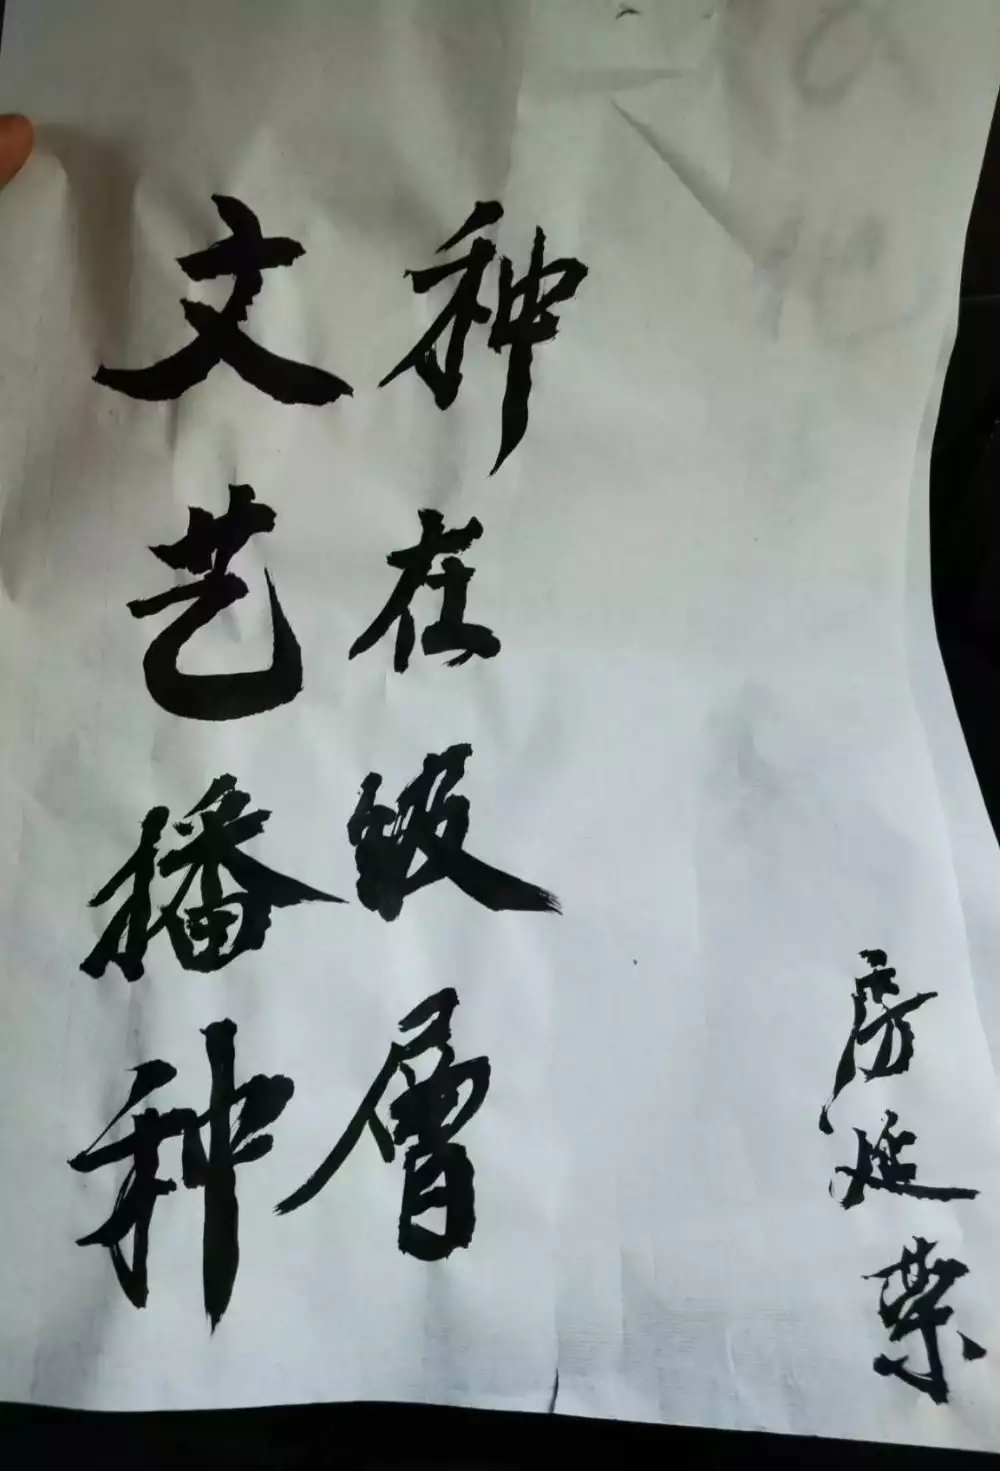 文艺播种
种在级層
房延荣